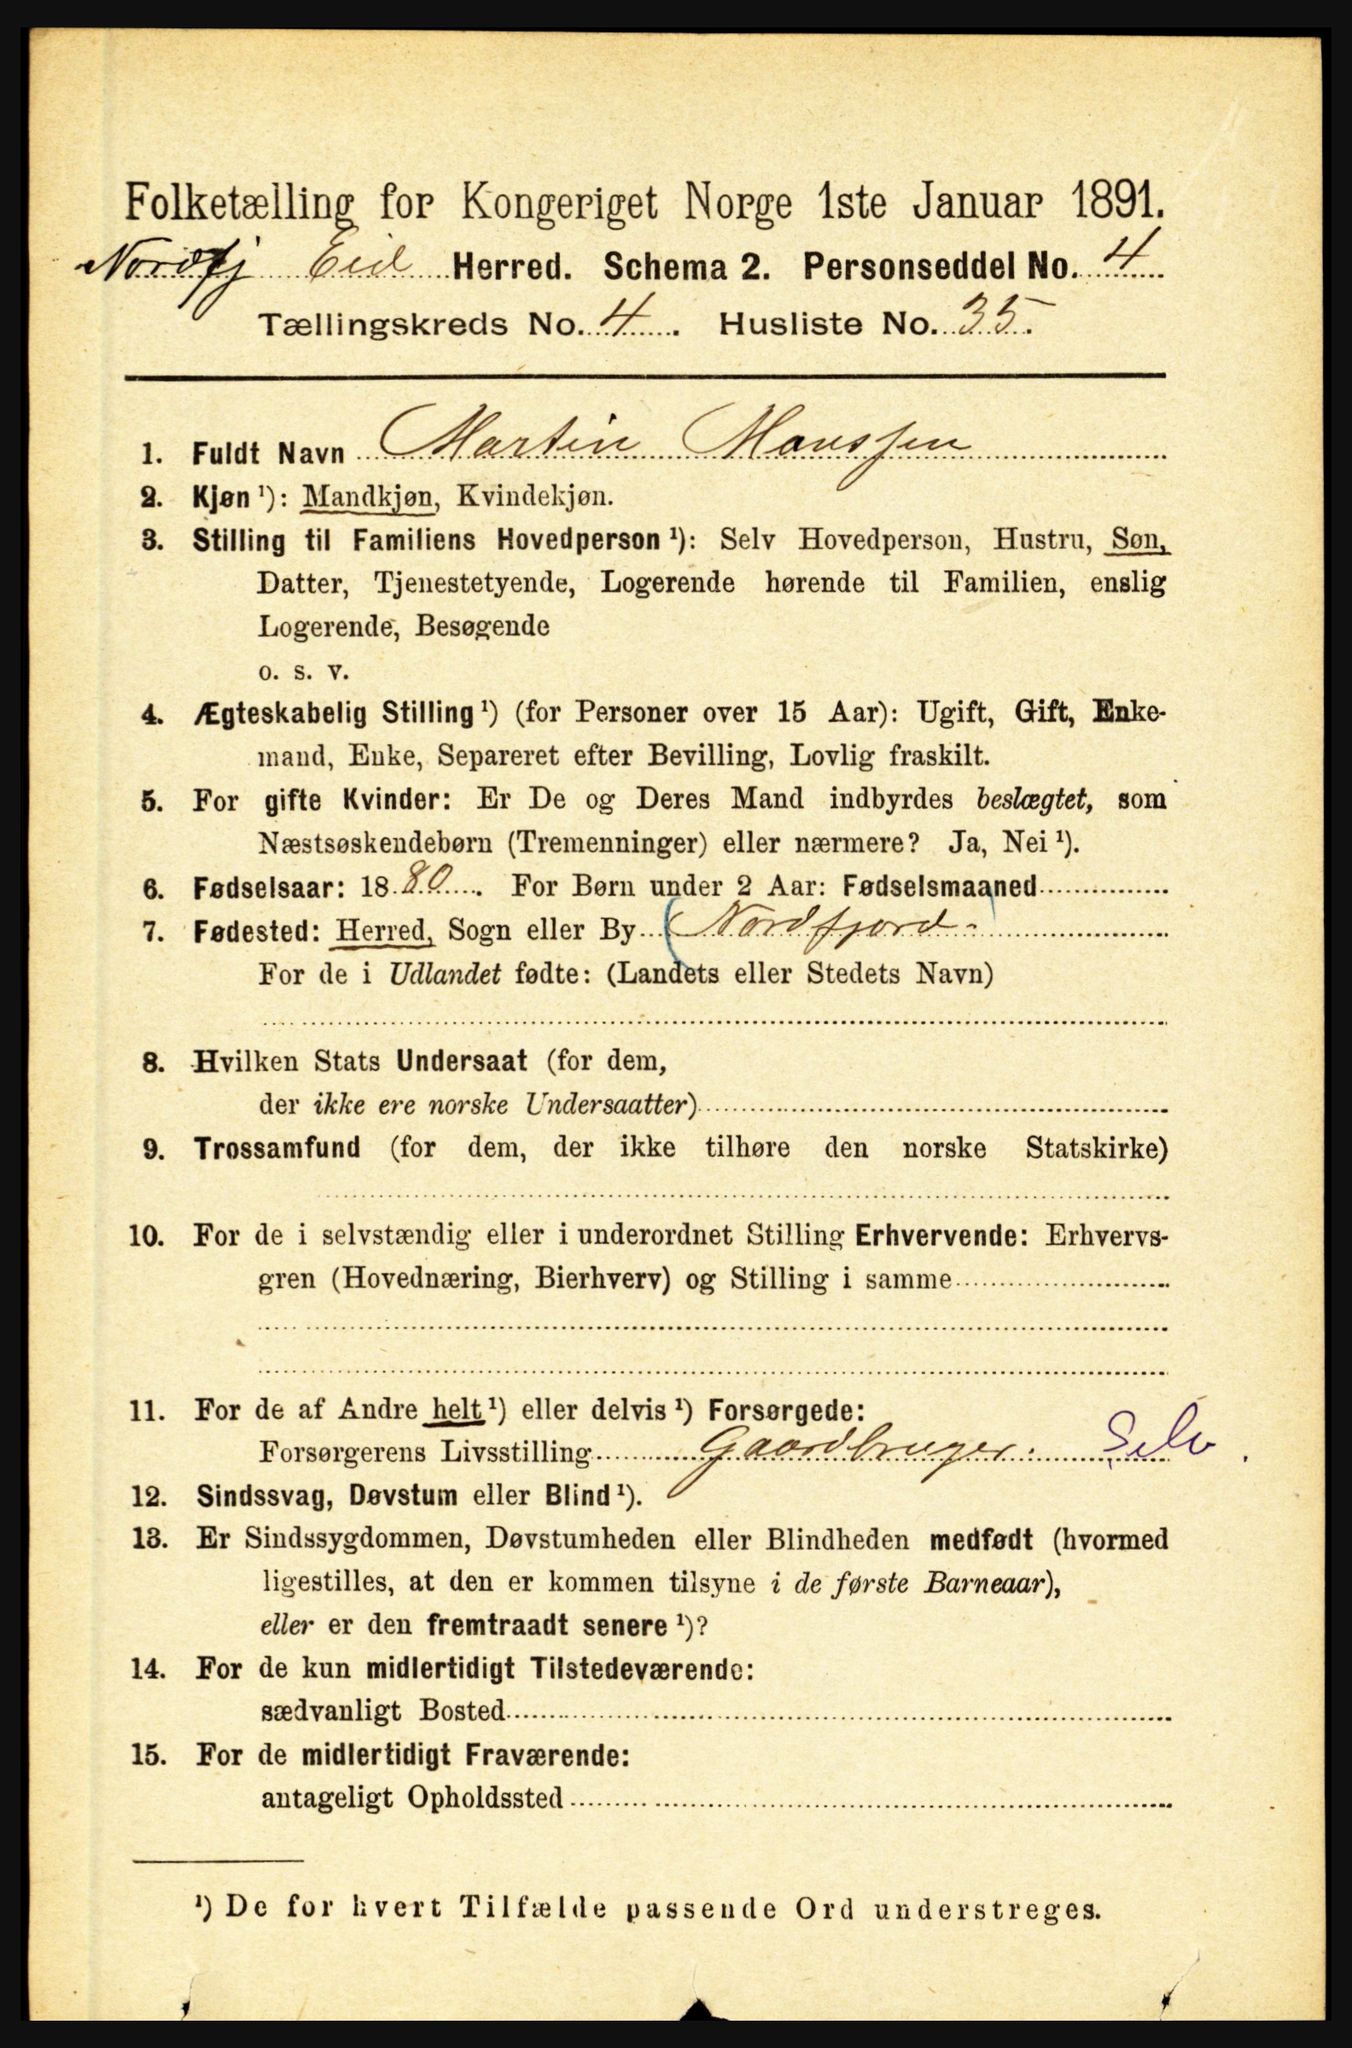 Folketælling for Kongeriget Norge 1ste Januar 1891.
Nordfj Eid Herred. Schema 2. Personseddel No. 4
Tællingskreds No. 4. Husliste No. 35.
1. Fuldt Navn Martin Monssen
2. Kjøn ¹): Mandkjøn, Kvindekjøn.
3. Stilling til Familiens Hovedperson ¹): Selv Hovedperson, Hustru, Søn,
Datter, Tjenestetyende, Logerende hørende til Familien, enslig
Logerende, Besøgende
o. s. v.
4. Ægteskabelig Stilling ¹) (for Personer over 15 Aar): Ugift, Gift, Enke-
mand, Enke, Separeret efter Bevilling, Lovlig fraskilt.
5. For gifte Kvinder: Er De og Deres Mand indbyrdes beslægtet, som
Næstsøskendebørn (Tremenninger) eller nærmere? Ja, Nei ¹).
6. Fødselsaar: 1880. For Børn under 2 Aar: Fødselsmaaned
7. Fødested: Herred, Sogn eller By (Nordfjord.)
For de i Udlandet fødte: (Landets eller Stedets Navn)
8. Hvilken Stats Undersaat (for dem,
der ikke ere norske Undersaatter)
9. Trossamfund (for dem, der ikke tilhøre den norske Statskirke)
10. For de i selvstændig eller i underordnet Stilling Erhvervende: Erhvervs-
gren (Hovednæring, Bierhverv) og Stilling i samme
11. For de af Andre helt ¹) eller delvis ¹) Forsørgede:
Forsørgerens Livsstilling Gaardbruger. Selv.
12. Sindssvag, Døvstum eller Blind ¹).
13. Er Sindssygdommen, Døvstumheden eller Blindheden medfødt (hvormed
ligestilles, at den er kommen tilsyne i de første Barneaar),
eller er den fremtraadt senere ¹)?
14. For de kun midlertidigt Tilstedeværende:
sædvanligt Bosted
15. For de midlertidigt Fraværende:
antageligt Opholdssted
¹) De for hvert Tilfælde passende Ord understreges.